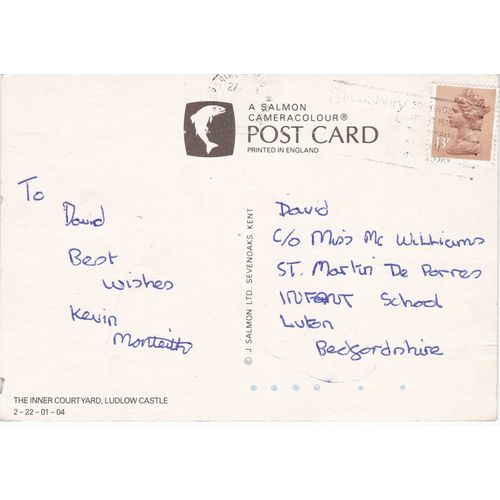 A SALMON
CAMERACOLOUR®
POST CARD
PRINTED IN ENGLAND
13P
To
David
Best
wishes
Kevin
Monteith
© J. SALMON LTD. SEVENOAKS, KENT
David
C/o Miss Mc Williams
ST. Martin De Porres
INFANT School
Luton
Bedgordshire
THE INNER COURTYARD, LUDLOW CASTLE
2–22–01–04